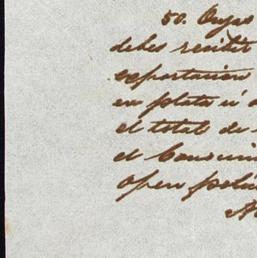 50. Cuyas
debes recibir
exportacion
en plata ú o
el total de
el Consumi
open polic